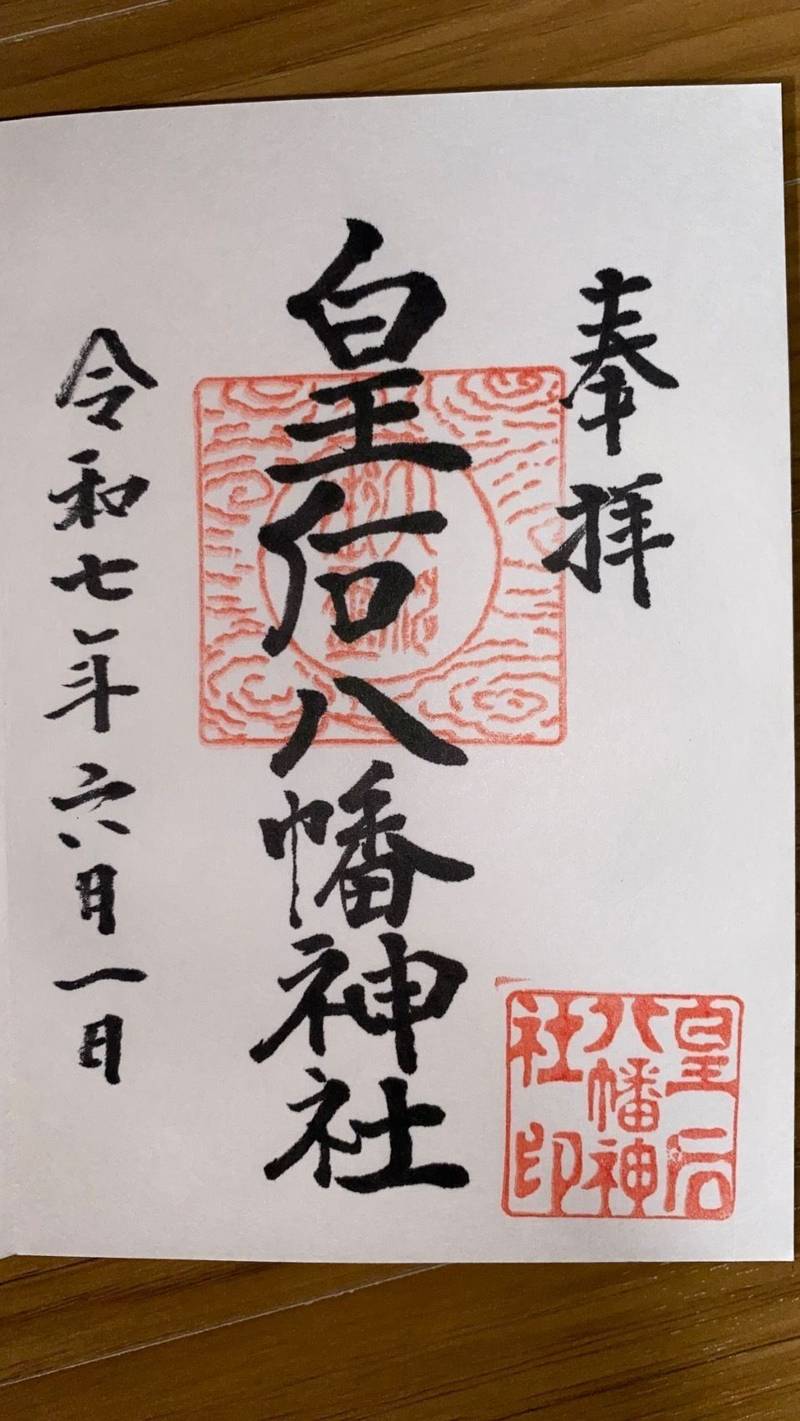 奉拝
皇后八幡神社
令和七年六月一日
皇后
八幡神
社印